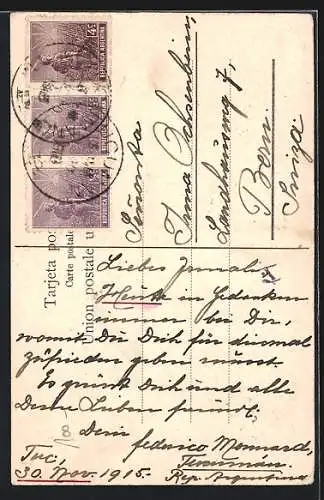 ½ C
REPUBLICA ARGENTINA
Tarjeta pos
Carte postale
Union postale u
Señorita
Irma Ochsenbein,
7,
Bern
Suiza
Liebes Irmali!
Heute in Gedanken
immer bei Dir,
womit Du Dich für diesmal
zufrieden geben musst.
Es grüsst Dich und alle
Deine Lieben
Dein
federico
Tuc,
30. Nov. 1915.
Tucuman.
Rep. Argentina